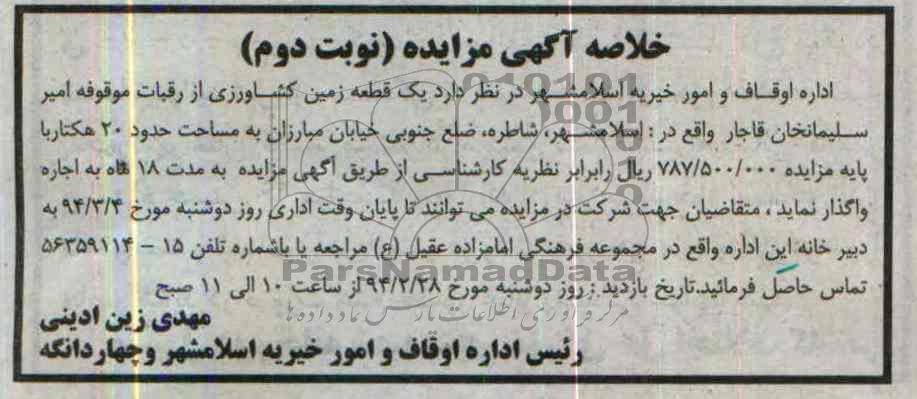 خلاصه آگهی مزایده (نوبت دوم)
اداره اوقاف و امور خیریه اسلامشهر در نظر دارد یک قطعه زمین کشاورزی از رقبات موقوفه امیر
سلیمانخان قاجار واقع در : اسلامشهر، شاطره، ضلع جنوبی خیابان مبارزان به مساحت حدود ۲۰ هکتاربا
پایه مزایده ۷۸۷/۵۰۰/۰۰۰ ریال رابرابر نظریه کارشناسی از طریق آگهی مزایده به مدت ۱۸ ماه به اجاره
واگذار نماید ، متقاضیان جهت شرکت در مزایده می توانند تا پایان وقت اداری روز دوشنبه مورخ ۹۴/۳/۴ به
دبیر خانه این اداره واقع در مجموعه فرهنگی امامزاده عقیل (ع) مراجعه یا باشماره تلفن ۱۵ – ۵۶۳۵۹۱۱۴
تماس حاصل فرمائید.تاریخ بازدید : روز دوشنبه مورخ ۹۴/۲/۲۸ از ساعت ۱۰ الی ۱۱ صبح
ParsNamadData
مرکز فرآوری اطلاعات پارس نماد داده ها
مهدی زین ادینی
رئیس اداره اوقاف و امور خیریه اسلامشهر وچهاردانگه